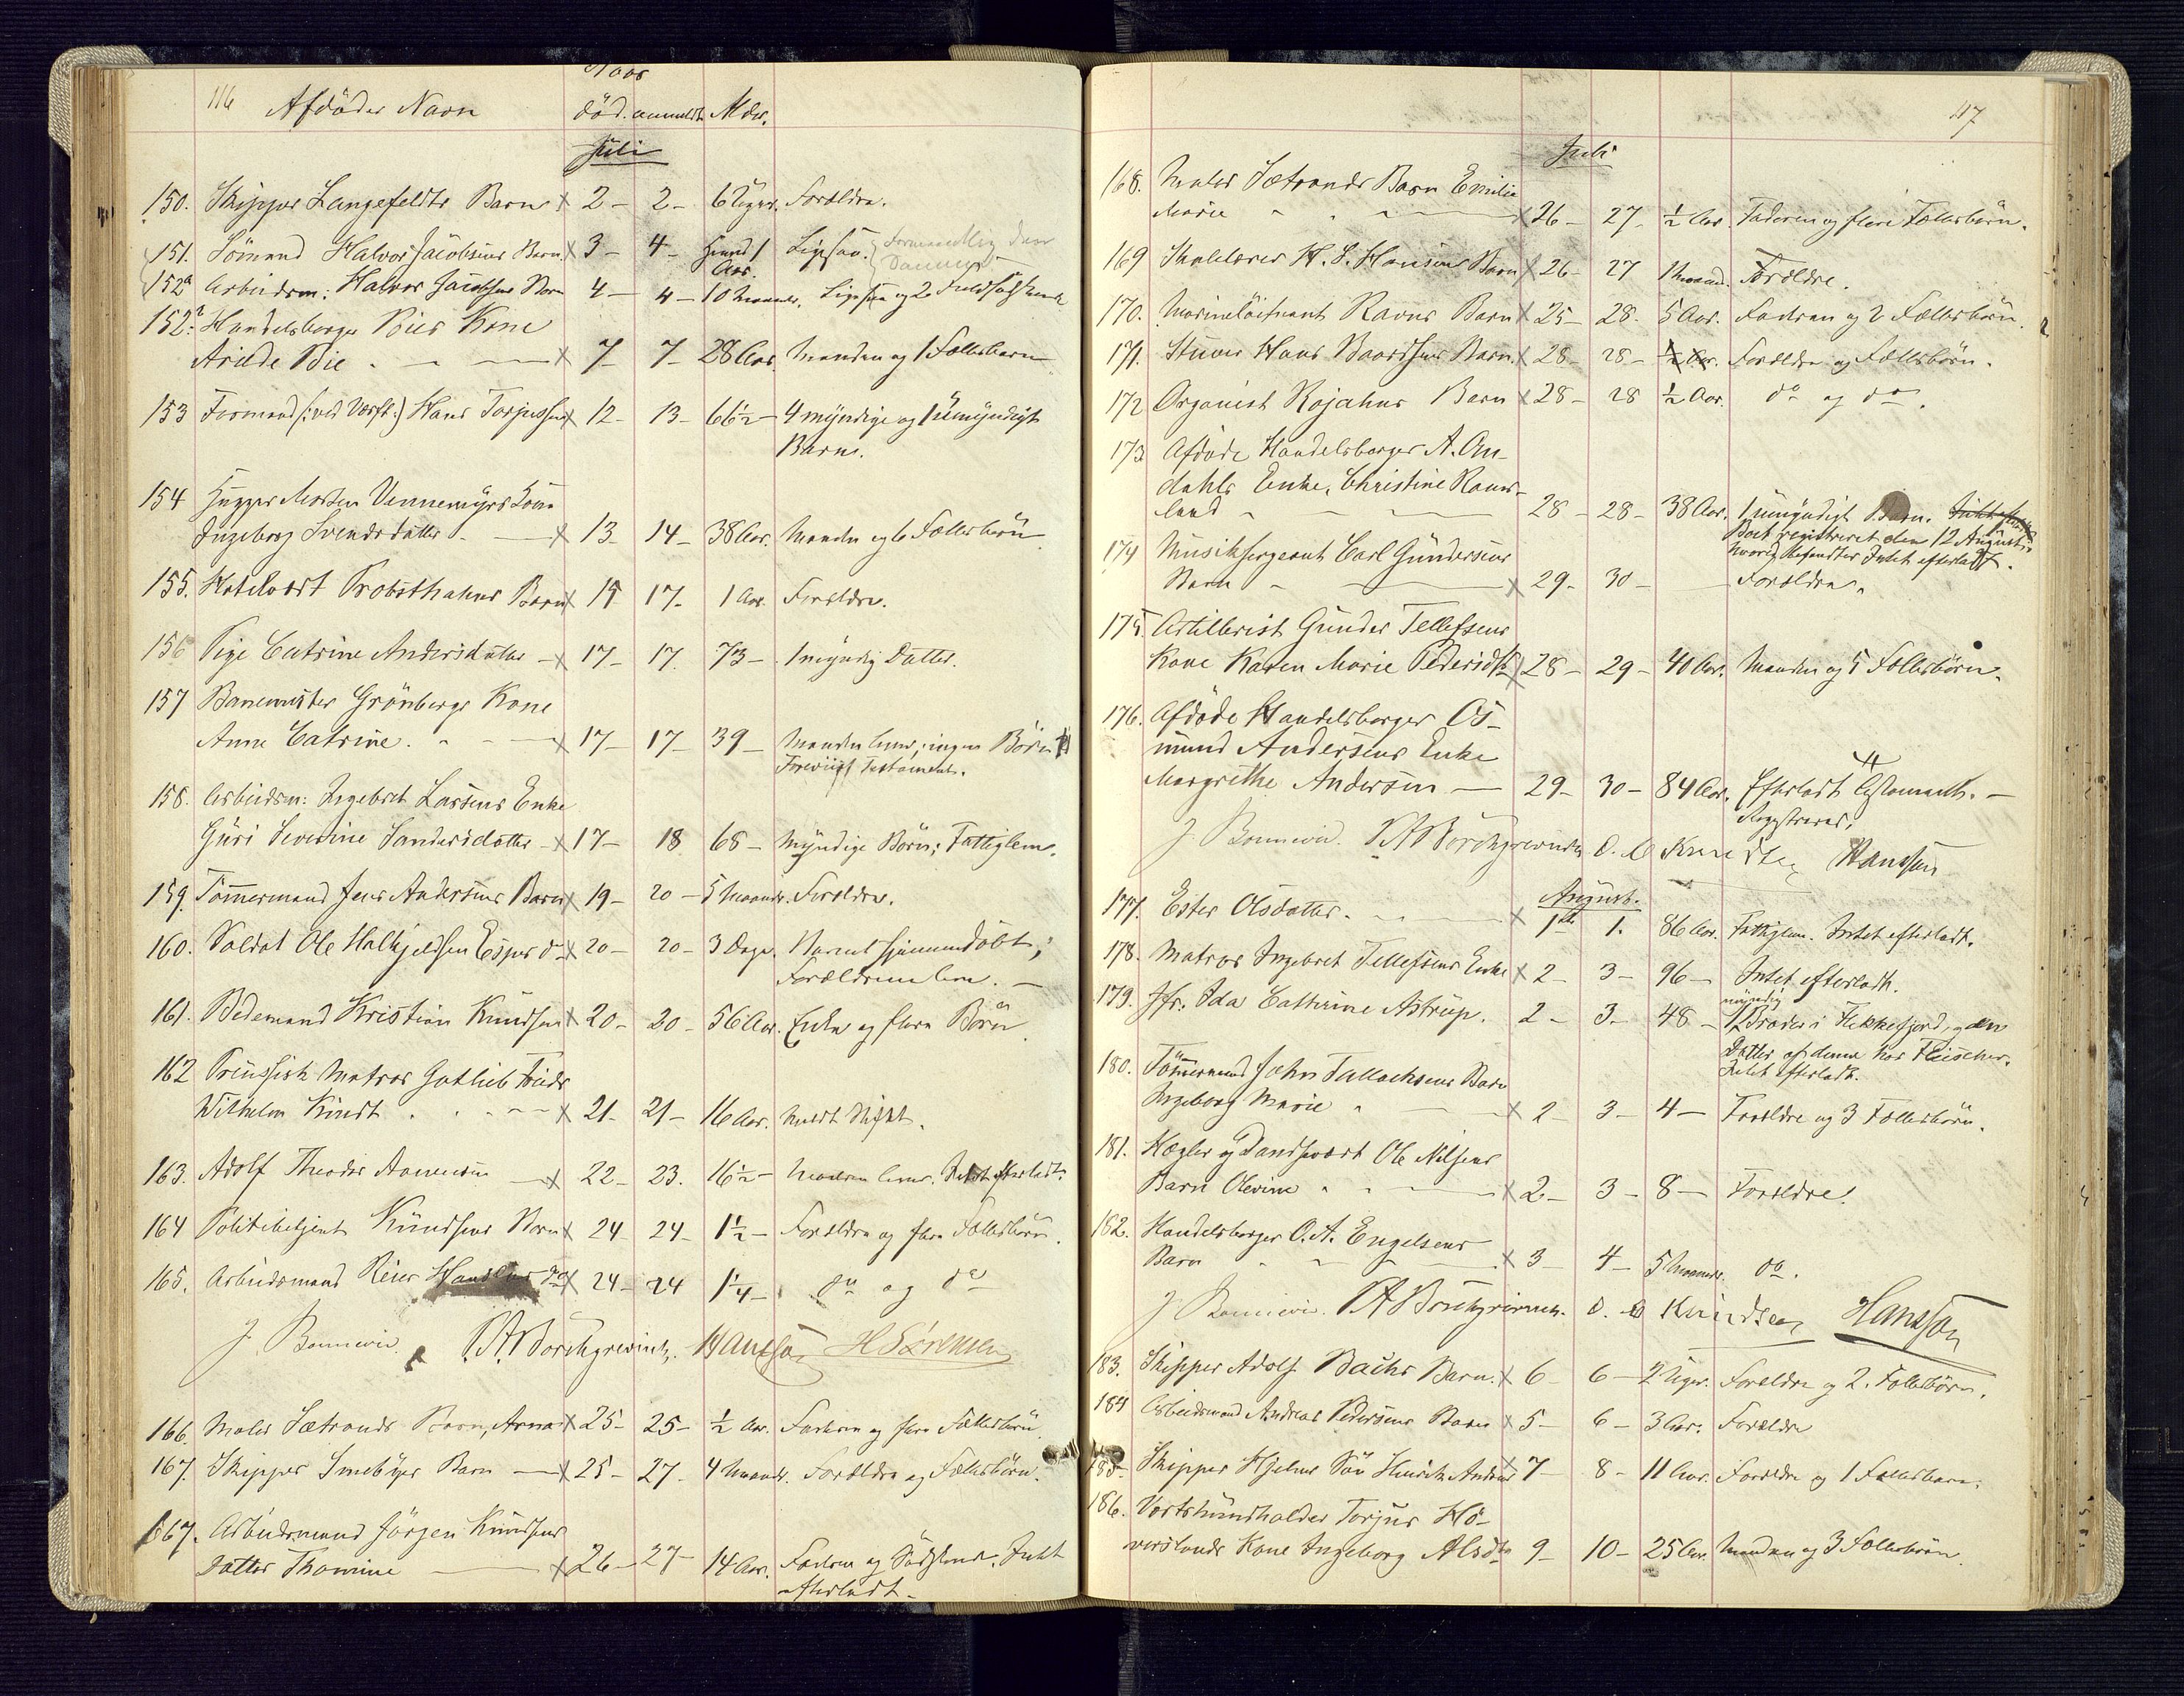 116
Afdøde Navn død. anmeldt Alder.
Juli
150. Skipper Langefeldts Barn x 2 – 2 – 6 Uger. Forældre.
151. Sömand Halvor Jacobsens Barn. x 3 – 4 – 1
Aar. Ligesaa.
152a Arbeidsm: Halvor Jacobsens Barn 4 – 4 – 10 Maaneder. Ligesaa og 2
152b. Handelsborger Bies Kone
Bie x 7 – 7 – 28 Aar. Manden og 1 Fællesbarn
153 Formand (: ved Værft :) Hans Torjussen x 12 – 13 – 66½ – 4 myndige og 1 umyndigt
Barn.
154 Morten Vennemyrs Kone
Ingeborg Svendsdatter. x 13 14 – 38 Aar. Manden og 6 Fællesbørn
155. Hotelvært Probsthahns Barn x 15 17 – 1 Aar. Forældre.
156 Pige Catrine Andersdatter – x 17 – 17. 73 – 1 myndig Datter.
157 Banemester Grönbergs Kone
Anne Catrine. x 17 – 17 – 39 – Manden lever, ingen Börn
Testamente.
158. Arbeidsm: Ingebret Larsens Enke
Guri Severine Sandersdatter – x 17 – 18 68 – Myndige Börn; Fattiglem.
159. Tömmermand Jens Andersens Barn x 19 – 20 – 5 Maander. Forældre.
160. Soldat Ole Halkjelsen Espes do x 20 – 20 – 3 Dage. Barnet hjemmedöbt;
Forældrene leve. –
161. Bedemand Kristian Knudsen x 20 – 20 – 56 Aar. Enke og flere Börn
162 Preussisk Matros Gotlieb Frieds
Wilhelm Kindt x 21 – 21 – 16 Aar. meldt Skiftet.
163. Adolf Theodor Aanensen – x 22 – 23. 16½ – Moderen lever. Intet efterladt.
164 Politibetjent Knudsens Barn x 24 24 – 1½ – Forældre og flere Fællesbörn.
165. Arbeidsmand Reier do x 24 – 24 1¼ – do og do
J. Bonnevie. P. A. Borchgrevink. Hansson H Sørensen
166. Maler Sætrands Barn, Anna x 25 – 25 – ½ Aar. Faderen og flere Fællesbörn.
167. Skipper Smebyes Barn – x 25 – 27 – 4 Maander. Forældre og Fællesbörn.
167. Arbeidsmand Jörgen Knudsens
Datter Thomine x 26 – 27 – 14 Aar. Faderen og Södskende. Intet
efterladt. –
117
Juli
168. Maler Sætrands Barn Emilie
Marie x 26 – 27 – ½ Aar. Faderen og flere Fællesbörn.
169 Skolelærer H. S. Hansens Barn x 26 – 27 1 Maaned. Forældre.
170. Marinelöitnant Ravns Barn x 25 – 28. 5 Aar. Faderen og 2 Fællesbörn.
171. Stuer Hans Baardsens Barn. x 28 – 28 – ½ Aar. Forældre og Fællesbörn.
172 Organist Rojahns Barn x 28 – 28 ½ Aar. do og do.
173 Afdöde Handelsborger A. On-
dahls Enke, Christine Raun-
land 28 – 28 – 38 Aar. 1 umyndigt Barn.
Boet registreret den 12 August,
hvorved befandtes Intet efterladt.
174 Musiksergeant Carl Gundersens
Barn x 29 – 30 – Forældre.
175. Artillerist Gunder Tellefsens
Kone Karen Marie Pedersdtr x 28 – 29 – 40 Aar. Manden og 5 Fællesbörn.
176. Afdöde Handelsborger Os-
mund Andersens Enke
Margrethe Andersen 29 – 30 – 84 Aar. Efterladt Testament. –
Registreret.
J. Bonnevie. P A Borchgrevink O. C Knudsen Hansson
August.
177. Ester Olsdatter. x 1ste 1. 86 Aar. Fattiglem. Intet efterladt.
178. Matros Ingebret Tellefsens Enke x 2 – 3 – 96 – Intet efterladt.
179. Jfr. Ida Cathrine Astrup. 2 – 3 – 48 – 1 myndig Broder i Flekkefjord, og en
Datter af denne hos Fleischer.
Intet efterladt.
180. Tömmermand John Tallachsens Barn
Ingeborg Marie x 2 – 3 – 4 – Forældre og 3 Fællesbörn.
181. Hægler og Dandsevært Ole Nilsens
Barn Olevine x 2 – 3 – 8 – Forældre.
182. Handelsborger O. A. Engelsens
Barn x 3 4 – 5 Maaneder. do.
J. Bonnevie. P A Borchgrevink. O. C Knudsen Hansson
183. Skipper Adolf Bachs Barn. x 6 – 6 – 2 Uger. Forældre og 2 Fællesbörn.
184 Arbeidsmand Andreas Pedersens Barn x 5 – 6 – 3 Aar. Forældre
185. Skipper Hjelms Sön Henrik Andreas x 7 – 8 – 11 Aar. Forældre og 1 Fællesbarn.
186. Vertshuusholder Torjus Hö-
verslands Kone Ingeborg Alsdtr 9 – 10 – 25 Aar. Manden og 3 Fællesbörn.